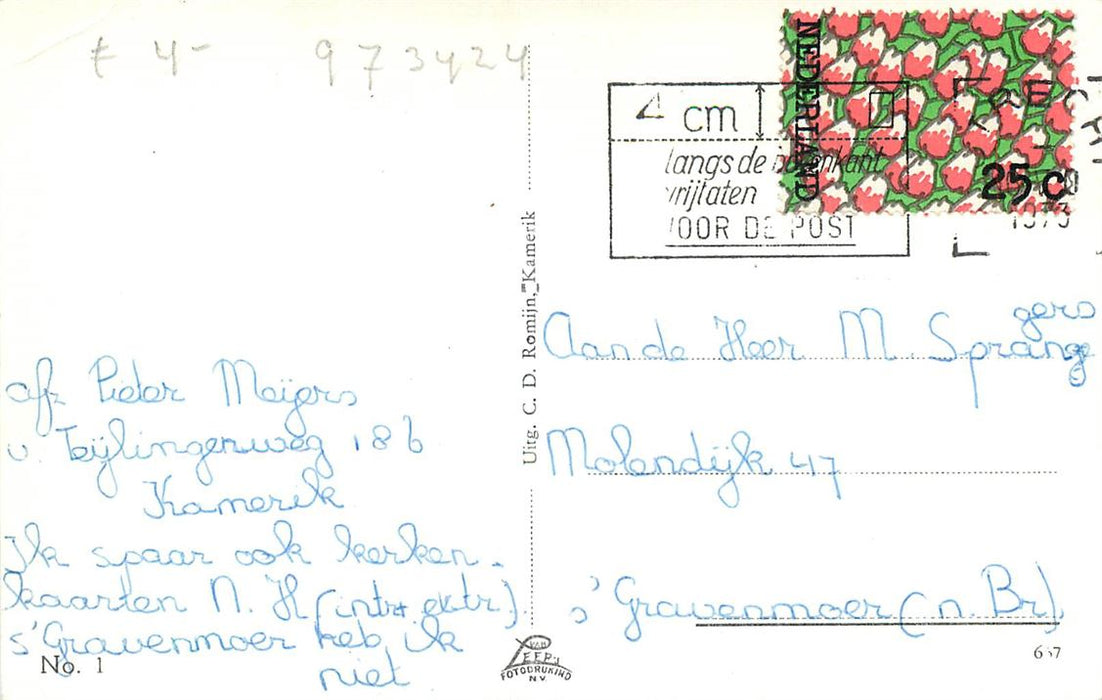 £ 4-
973424
NEDERLAND
25 c
4 cm
langs de bovenkant
vrijlaten
VOOR DE POST
1973
Uitg. C. D. Romijn, Kamerik
afz Pieter Meijers
v. Teijlingenweg 186
Kamerik
Ik spaar ook kerken-
kaarten N. H (intr + extr).
s'Gravenmoer heb ik
niet
Aan de Heer M Sprangers
Molendijk 47
s'Gravenmoer (n. Br)
No. 1
VAN LEER'S
FOTODRUKIND
N.V.
637